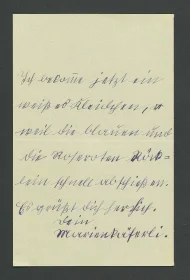 Ich bekomme jetzt ein
weißes Kleidchen,
weil die blauen und
die rosaroten Röck-
lein schnell abschießen.
Es grüßt dich herzlich.
Dein
Marienkäferli.